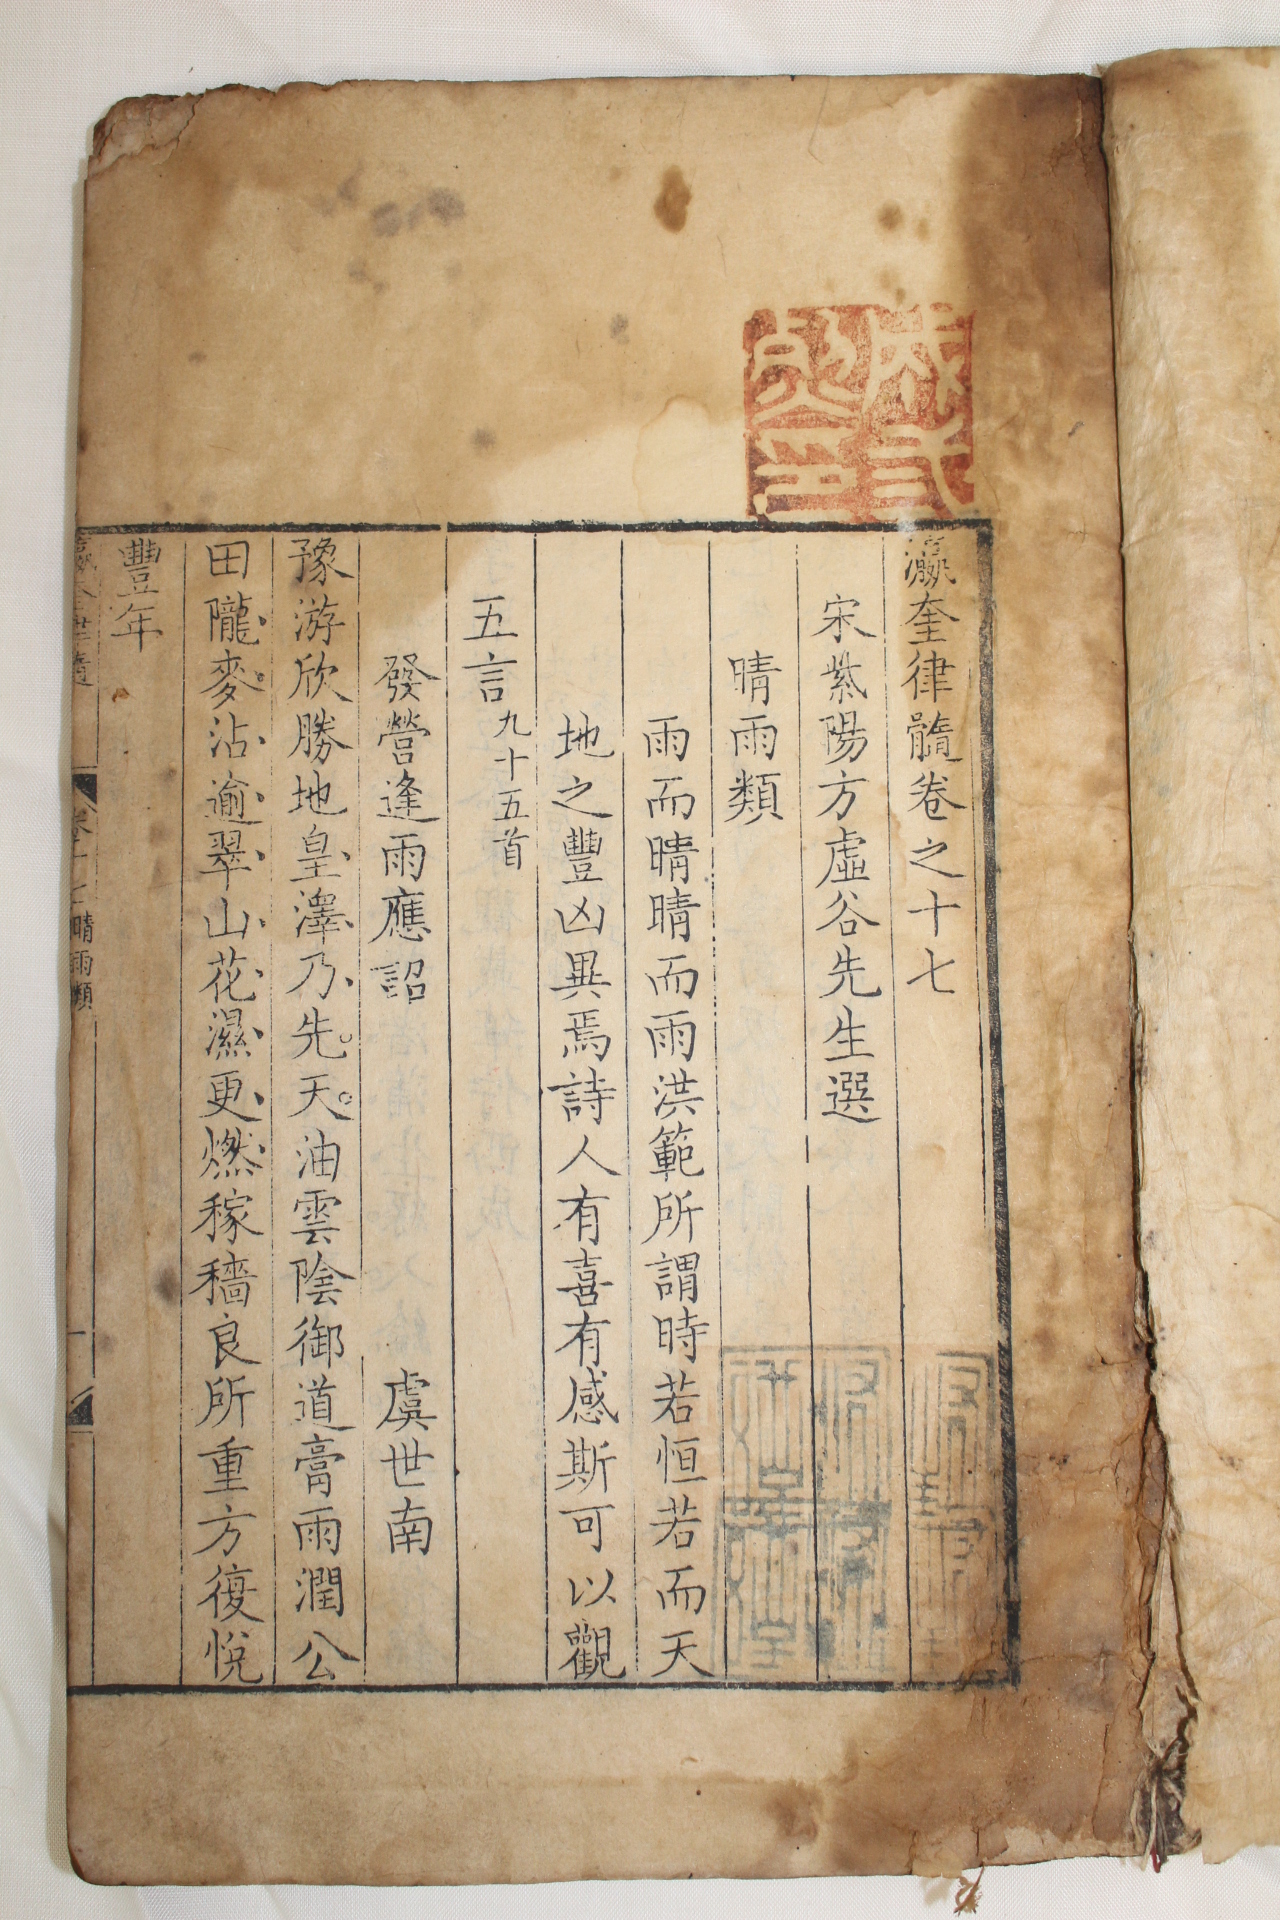 瀛奎律髓卷之十七
宋紫陽方虛谷先生選
晴雨類
雨而晴晴而雨洪範所謂時若恒若而天
地之豐凶異焉詩人有喜有感斯可以觀
五言九十五首
發營逢雨應詔 虞世南
豫游欣勝地皇澤乃先天油雲陰御道膏雨潤公
田隴麥沾逾翠山花濕更燃稼穡良所重方復悅
豐年
晴雨類